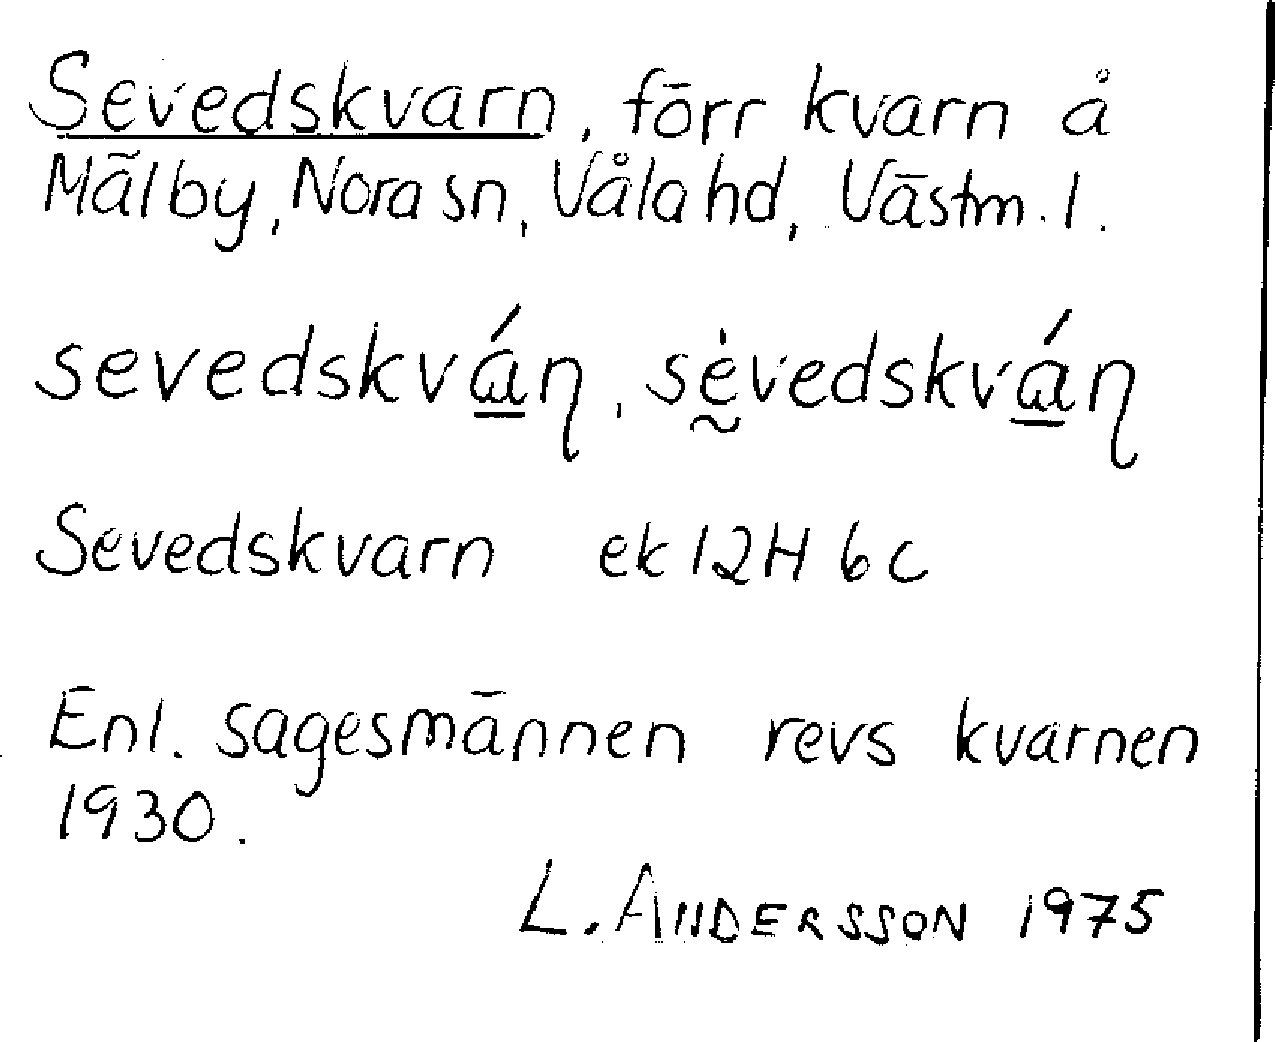 Sevedskvarn, förr kvarn å
Mälby, Nora sn, Våla hd, Västm. l.
sevedskvá̲ɳ, sḛ̇vedskvá̲ɳ
Sevedskvarn ek 12H 6c
Enl. sagesmännen revs kvarnen
1930.
L. ANDERSSON 1975